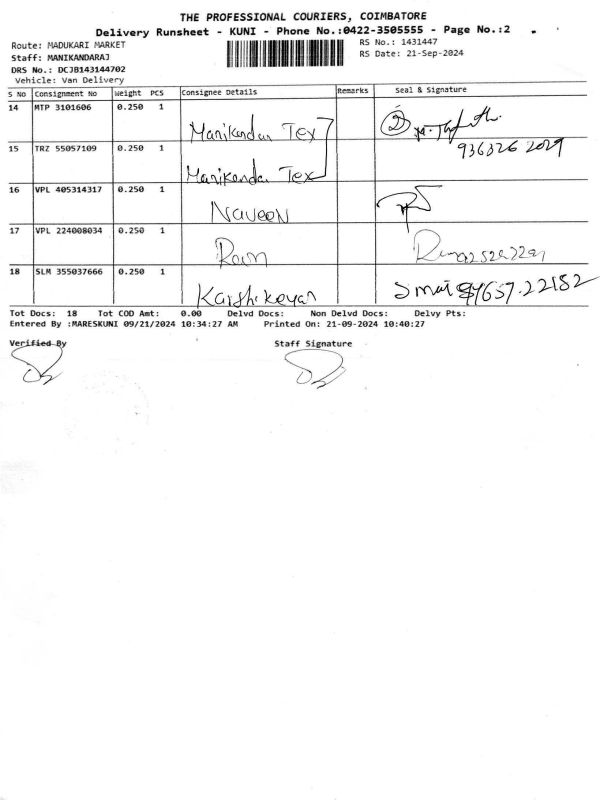 THE PROFESSIONAL COURIERS, COIMBATORE
Delivery Runsheet - KUNI - Phone No.:0422-3505555 - Page No.:2
Route: MADUKARI MARKET
RS No.: 1431447
Staff: MANIKANDARAJ
RS Date: 21-Sep-2024
DRS No.: DCJB143144702
Vehicle: Van Delivery
S No Consignment No Weight PCS Consignee Details Remarks Seal & Signature
14 MTP 3101606 0.250 1 Manikandan Tex 2
936326 2029
15 TRZ 55057109 0.250 1 Manikanda Tex
16 VPL 405314317 0.250 1 Naveen
17 VPL 224008034 0.250 1 Ram
18 SLM 355037666 0.250 1 Karthikeyan
Tot Docs: 18 Tot COD Amt: 0.00 Delvd Docs: Non Delvd Docs: Delvy Pts:
Entered By :MARESKUNI 09/21/2024 10:34:27 AM Printed On: 21-09-2024 10:40:27
Verified By Staff Signature